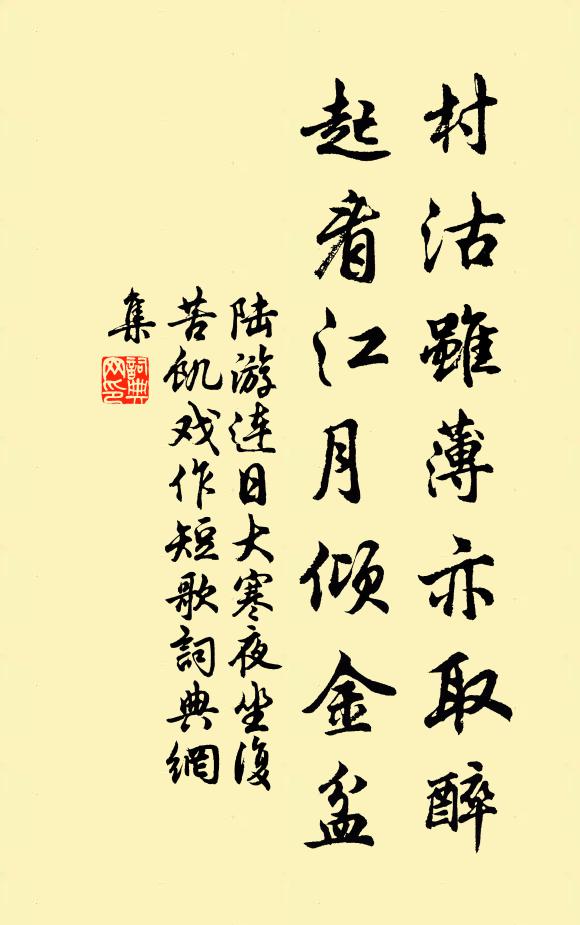 村沽雖薄亦取醉
起看江月傾金盆
陆游连日大寒夜坐復
苦飢戏作短歌詞典網
集
詞典
网印